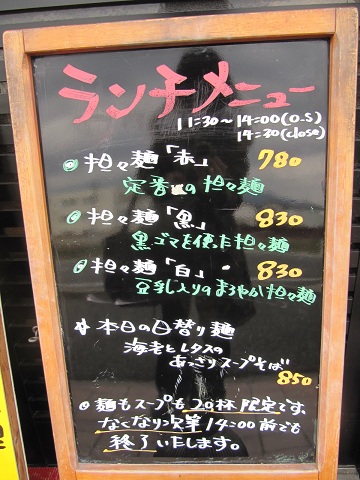 ランチメニュー
11:30～14:00(O.S)
14:30(close)
◎ 担々麺「赤」 780
定番の担々麺
◎ 担々麺「黒」 830
黒ゴマを使た担々麺
◎ 担々麺「白」 830
豆乳入りのまろやか担々麺
本日の日替り麺
海老とレタスの
あっさりスープそば
850
◎ 麺もスープも20杯限定です。
なくなり次第14:00前でも
終了いたします。